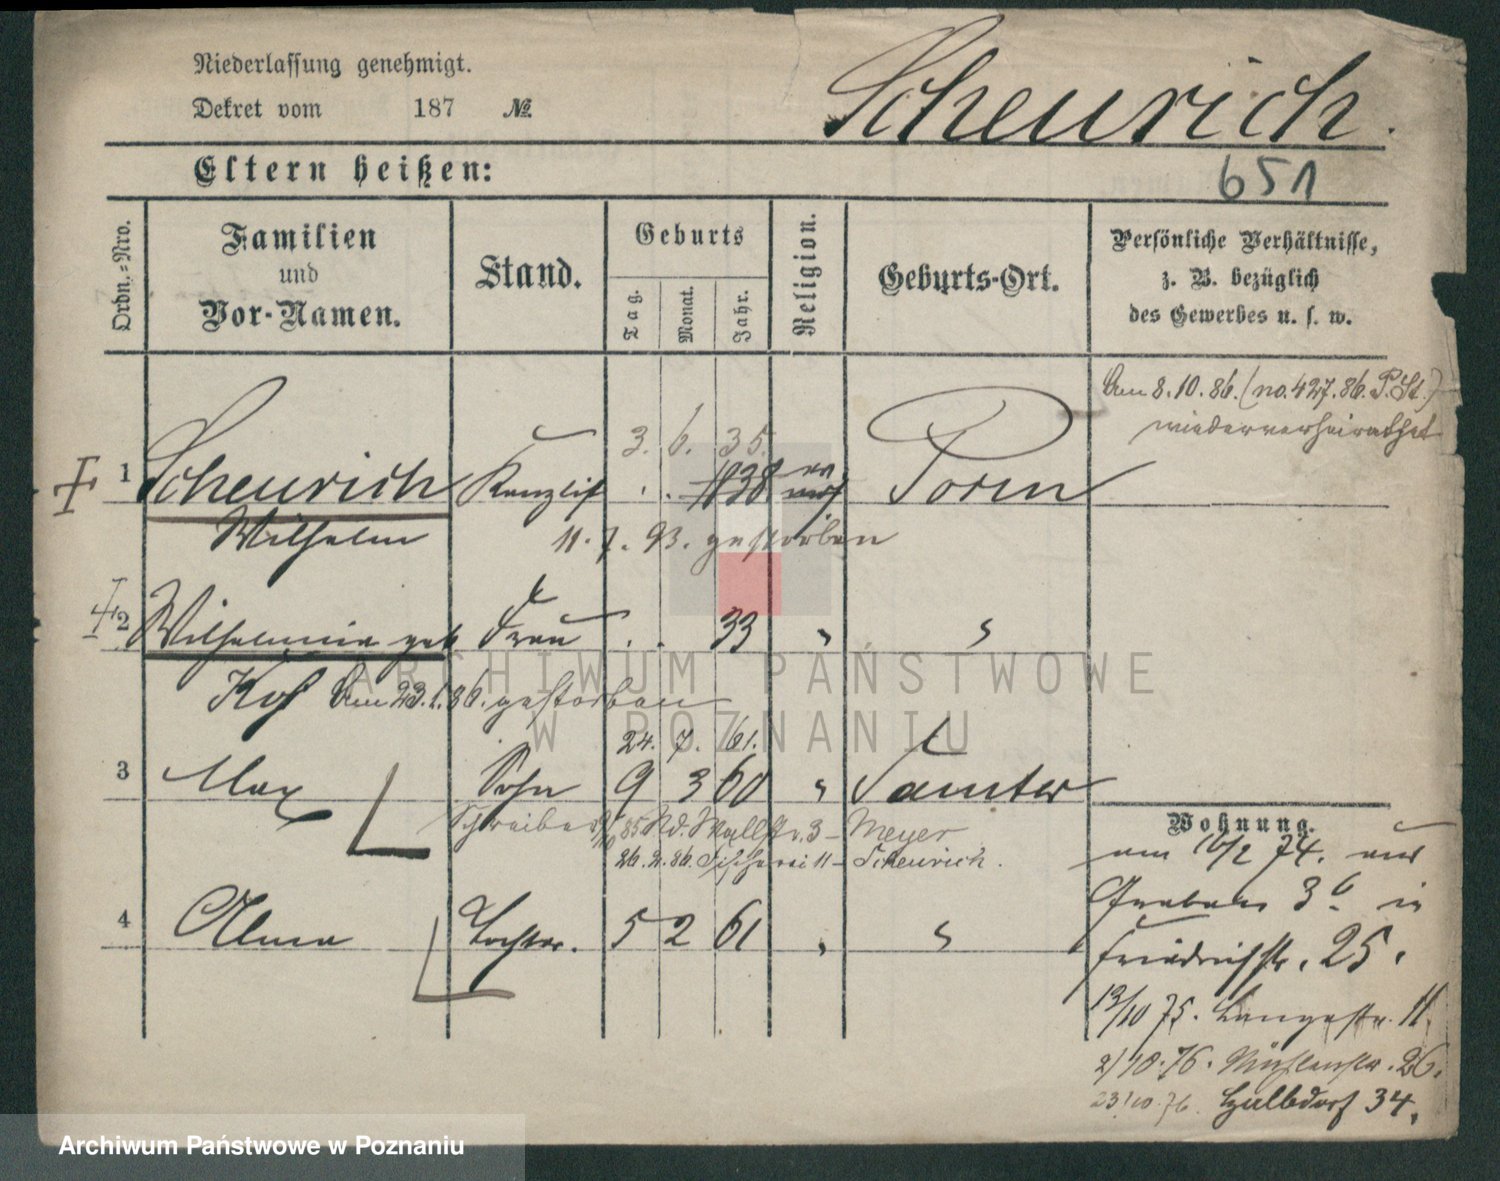 Niederlassung genehmigt.
Dekret vom 187 №
Scheurich.
651
Eltern heißen:
Ordn.-Nro.
Familien
und
Vor-Namen.
Stand.
Geburts
Tag.
Monat.
Jahr.
Religion.
Geburts-Ort.
Persönliche Verhältnisse,
z. B. bezüglich
des Gewerbes u. s. w.
Am 8.10.86. (no. 427.86. P. St.)
wiederverheirathet
3. 6. 35.
1 Scheurich Kanzlist 1838 Posen
Wilhelm 11. 7. 93. gestorben
2 Wilhelmine geb Frau 33 "
Am 23.1.86. gestorben
24. 7. 61.
3 Max Sohn 9 3 60 " Samter
Schreiber 85 Wallstr. 3 - Meyer
26.2.86. Fischerei 11 - Scheurich.
4 Alma Tochter. 5 2 61 " "
Wohnung.
am 16/2 74. aus
Graben 3b in
Friedrichstr. 25.
13/10 75. Langestr. 11.
2/10. 76. Mühlenstr. 26.
23/10. 76. Halbdorf 34.
ARCHIWUM PAŃSTWOWE
W POZNANIU
Archiwum Państwowe w Poznaniu